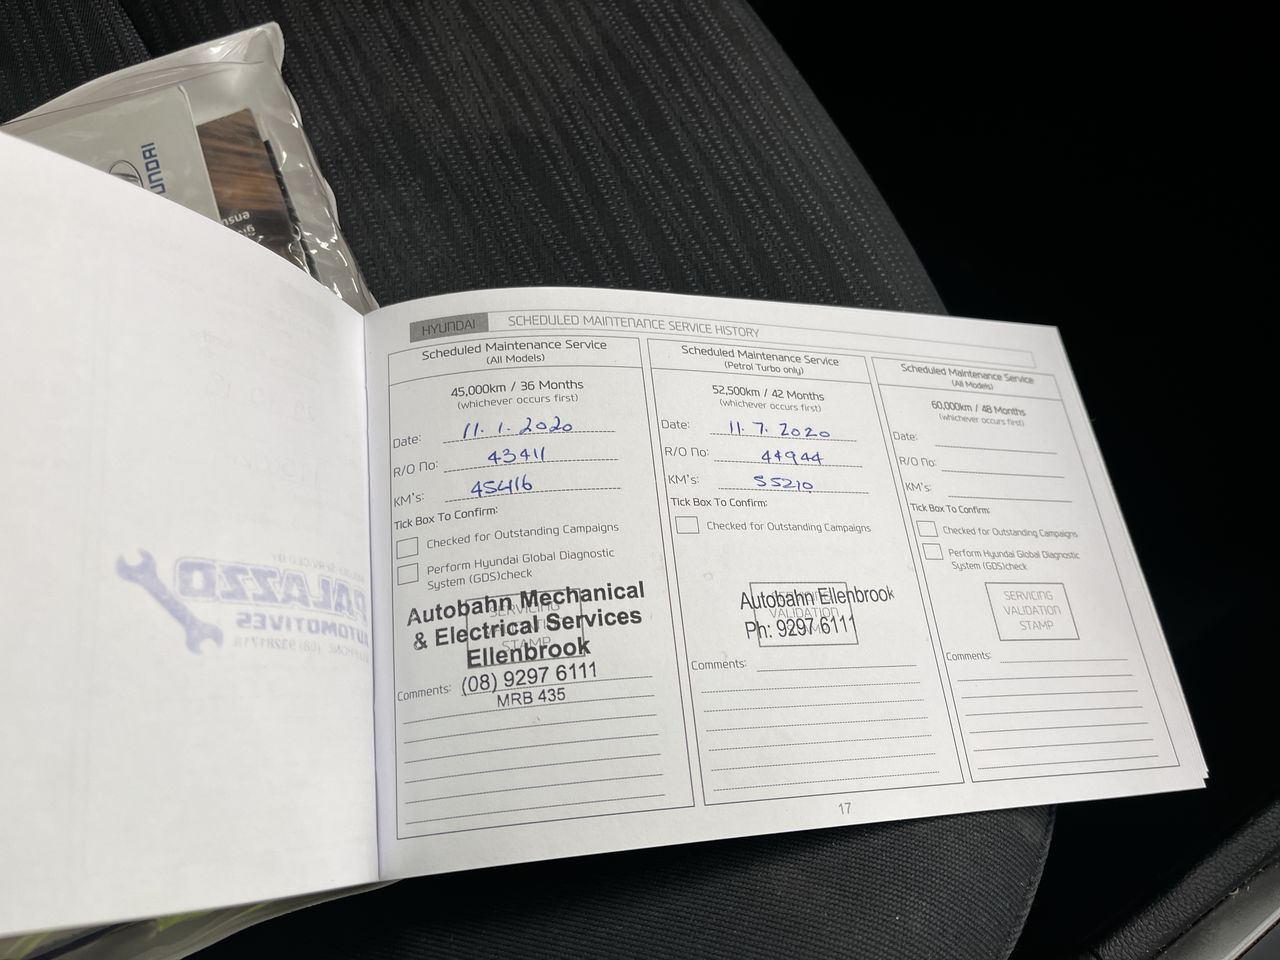 HYUNDAI
HYUNDAI SCHEDULED MAINTENANCE SERVICE HISTORY
Scheduled Maintenance Service
(All Models)
45,000km / 36 Months
(whichever occurs first)
Date: 11.1.2020
R/O No: 43411
KM's: 45416
Tick Box To Confirm:
Checked for Outstanding Campaigns
Perform Hyundai Global Diagnostic
System (GDS)check
SERVICING
VALIDATION
STAMP
Autobahn Mechanical
& Electrical Services
Ellenbrook
(08) 9297 6111
MRB 435
Comments:
Scheduled Maintenance Service
(Petrol Turbo only)
52,500km / 42 Months
(whichever occurs first)
Date: 11.7.2020
R/O No: 44944
KM's: 55210
Tick Box To Confirm:
Checked for Outstanding Campaigns
SERVICING
VALIDATION
STAMP
Autobahn Ellenbrook
Ph: 9297 6111
Comments:
Scheduled Maintenance Service
(All Models)
60,000km / 48 Months
(whichever occurs first)
Date:
R/O No:
KM's:
Tick Box To Confirm:
Checked for Outstanding Campaigns
Perform Hyundai Global Diagnostic
System (GDS)check
SERVICING
VALIDATION
STAMP
Comments:
17
PALAZZO
AUTOMOTIVES